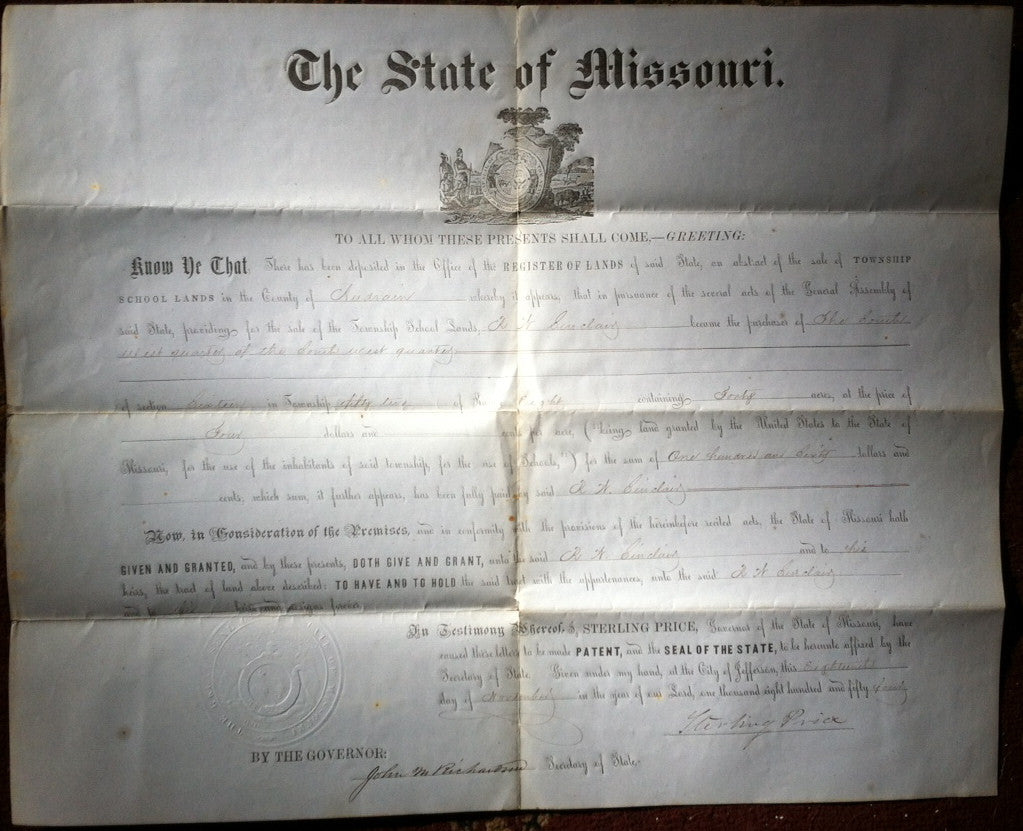 The State of Missouri.
TO ALL WHOM THESE PRESENTS SHALL COME,—GREETING:
Know Ye That There has been deposited in the Office of the REGISTER OF LANDS of said State, an abstract of the sale of TOWNSHIP
SCHOOL LANDS in the County of Audrain whereby it appears, that in pursuance of the several acts of the General Assembly of
said State, providing for the sale of the Township School Lands, R W Sinclair became the purchaser of The South
west quarter of the South west quarter
of section Sixteen in Township fifty two of Ra Eight containing Forty acres, at the price of
Four dollars and cents per acre, ("being land granted by the United States to the State of
Missouri, for the use of the inhabitants of said township, for the use of Schools,") for the sum of One hundred and Sixty dollars and
cents; which sum, it further appears, has been fully paid by said R. W. Sinclair
Now, in Consideration of the Premises, and in conformity with the provisions of the hereinbefore recited acts, the State of Missouri hath
GIVEN AND GRANTED, and by these presents, DOTH GIVE AND GRANT, unto the said R W Sinclair and to his
heirs, the tract of land above described: TO HAVE AND TO HOLD the said tract with the appurtenances, unto the said R W Sinclair
and to his heirs and assigns forever
In Testimony Whereof, I, STERLING PRICE, Governor of the State of Missouri, have
caused these letters to be made PATENT, and the SEAL OF THE STATE, to be hereunto affixed by the
Secretary of State. Given under my hand, at the City of Jefferson, this Eighteenth
day of November in the year of our Lord, one thousand eight hundred and fifty
Sterling Price
BY THE GOVERNOR:
John M Richardson Secretary of State.